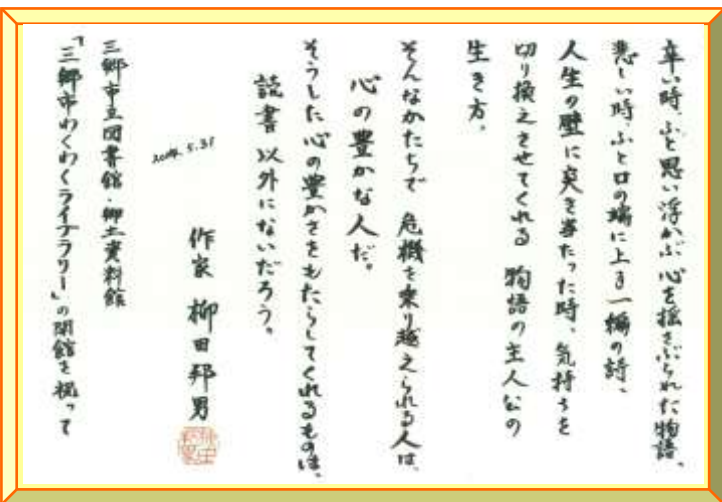 辛い時、ふと思い浮かぶ心を揺さぶられた物語、
悲しい時、ふと口の端に上る一編の詩、
人生の壁に突き当たった時、気持ちを
切り換えさせてくれる 物語の主人公の
生き方。
そんなかたちで 危機を乗り越えられる人は、
心の豊かな人だ。
そうした心の豊かさをもたらしてくれるものは、
読書以外にないだろう。
5.31
作家 柳田邦男
三郷市立図書館・郷土資料館
「三郷市わくわくライブラリー」の開館を祝って